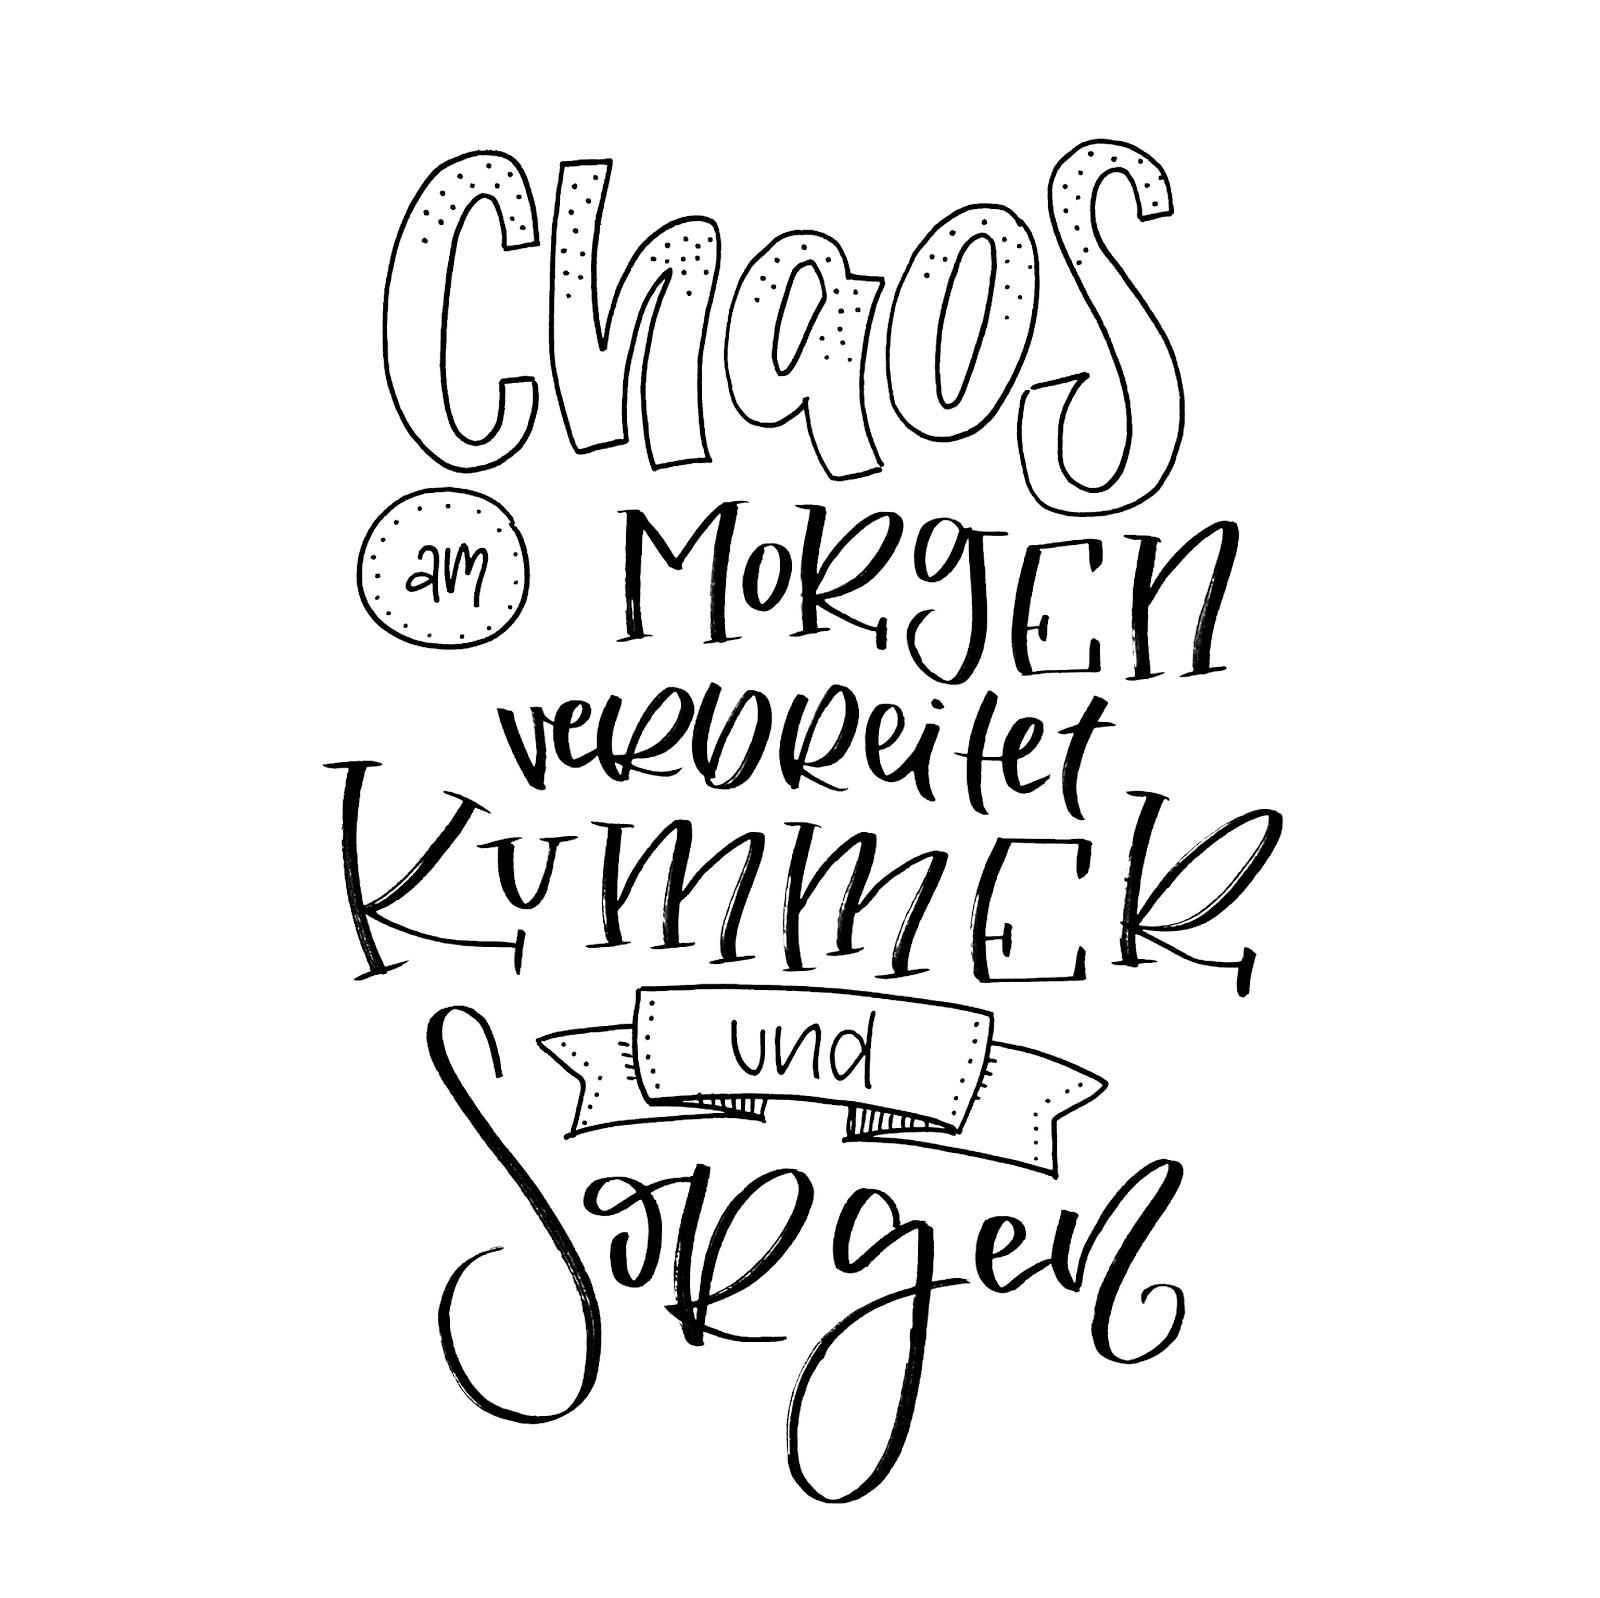 Chaos
am MORgEN
verbreitet
KUMMER
und
Sorgen